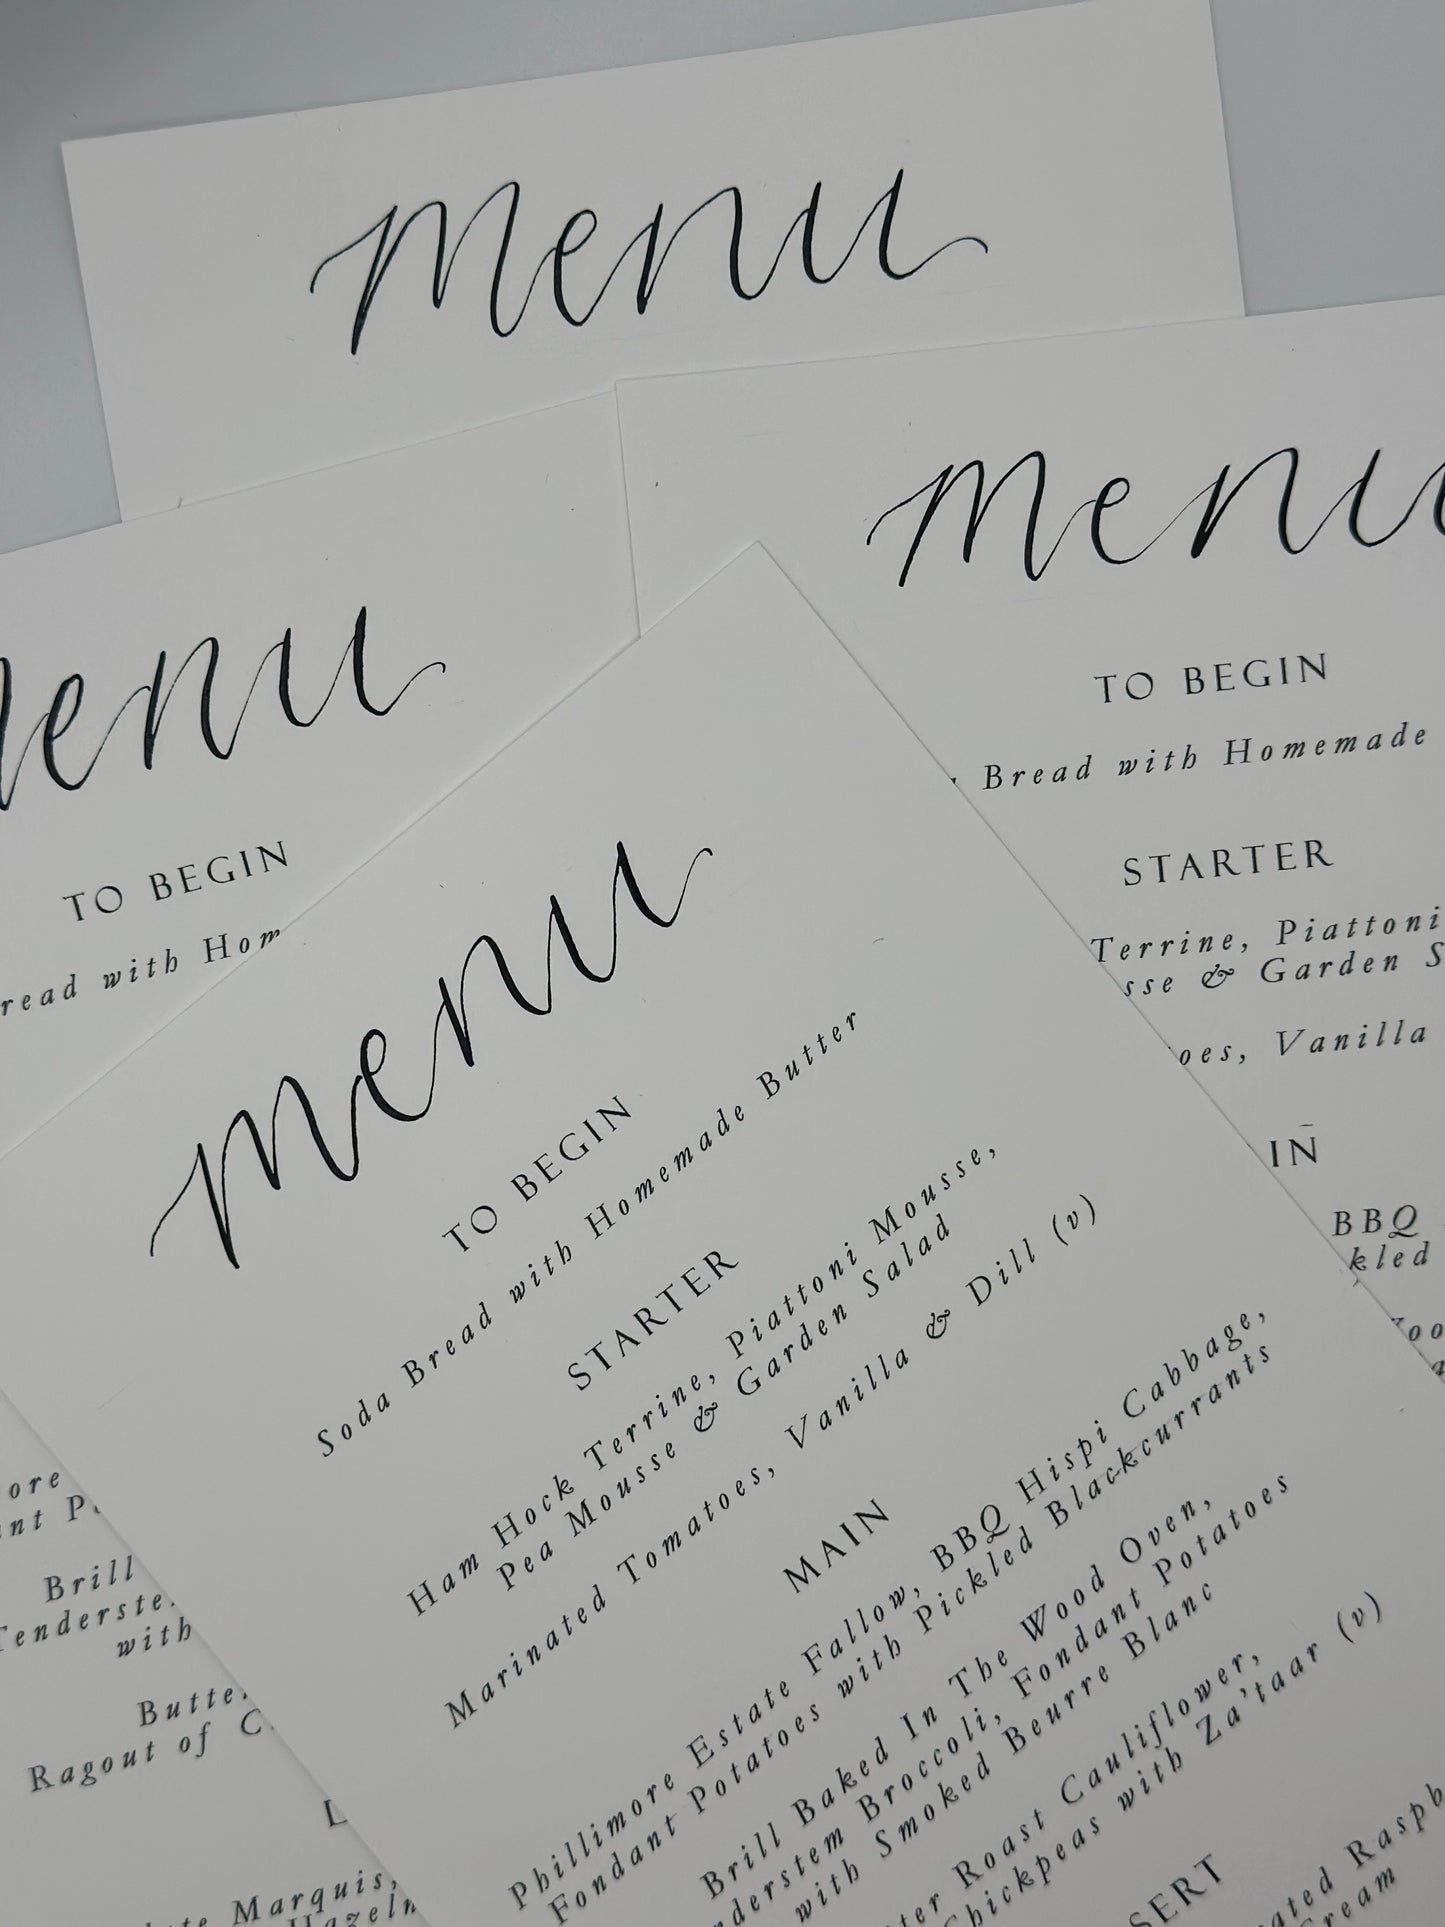 menu
menu
TO BEGIN
Bread with Homemade
STARTER
Terrine, Piattoni
sse & Garden S
oes, Vanilla
IN
BBQ
kled
enu
TO BEGIN
read with Hom
ore
nt P
Brill
Tenderste
with
Butte
Ragout of C
Marquis,
Hazeln
menu
TO BEGIN
Soda Bread with Homemade Butter
STARTER
Ham Hock Terrine, Piattoni Mousse,
Pea Mousse & Garden Salad
Marinated Tomatoes, Vanilla & Dill (v)
MAIN
Phillimore Estate Fallow, BBQ Hispi Cabbage,
Fondant Potatoes with Pickled Blackcurrants
Brill Baked In The Wood Oven,
nderstem Broccoli, Fondant Potatoes
with Smoked Beurre Blanc
ter Roast Cauliflower,
Chickpeas with Za'taar (v)
SERT
ated Raspb
Cream